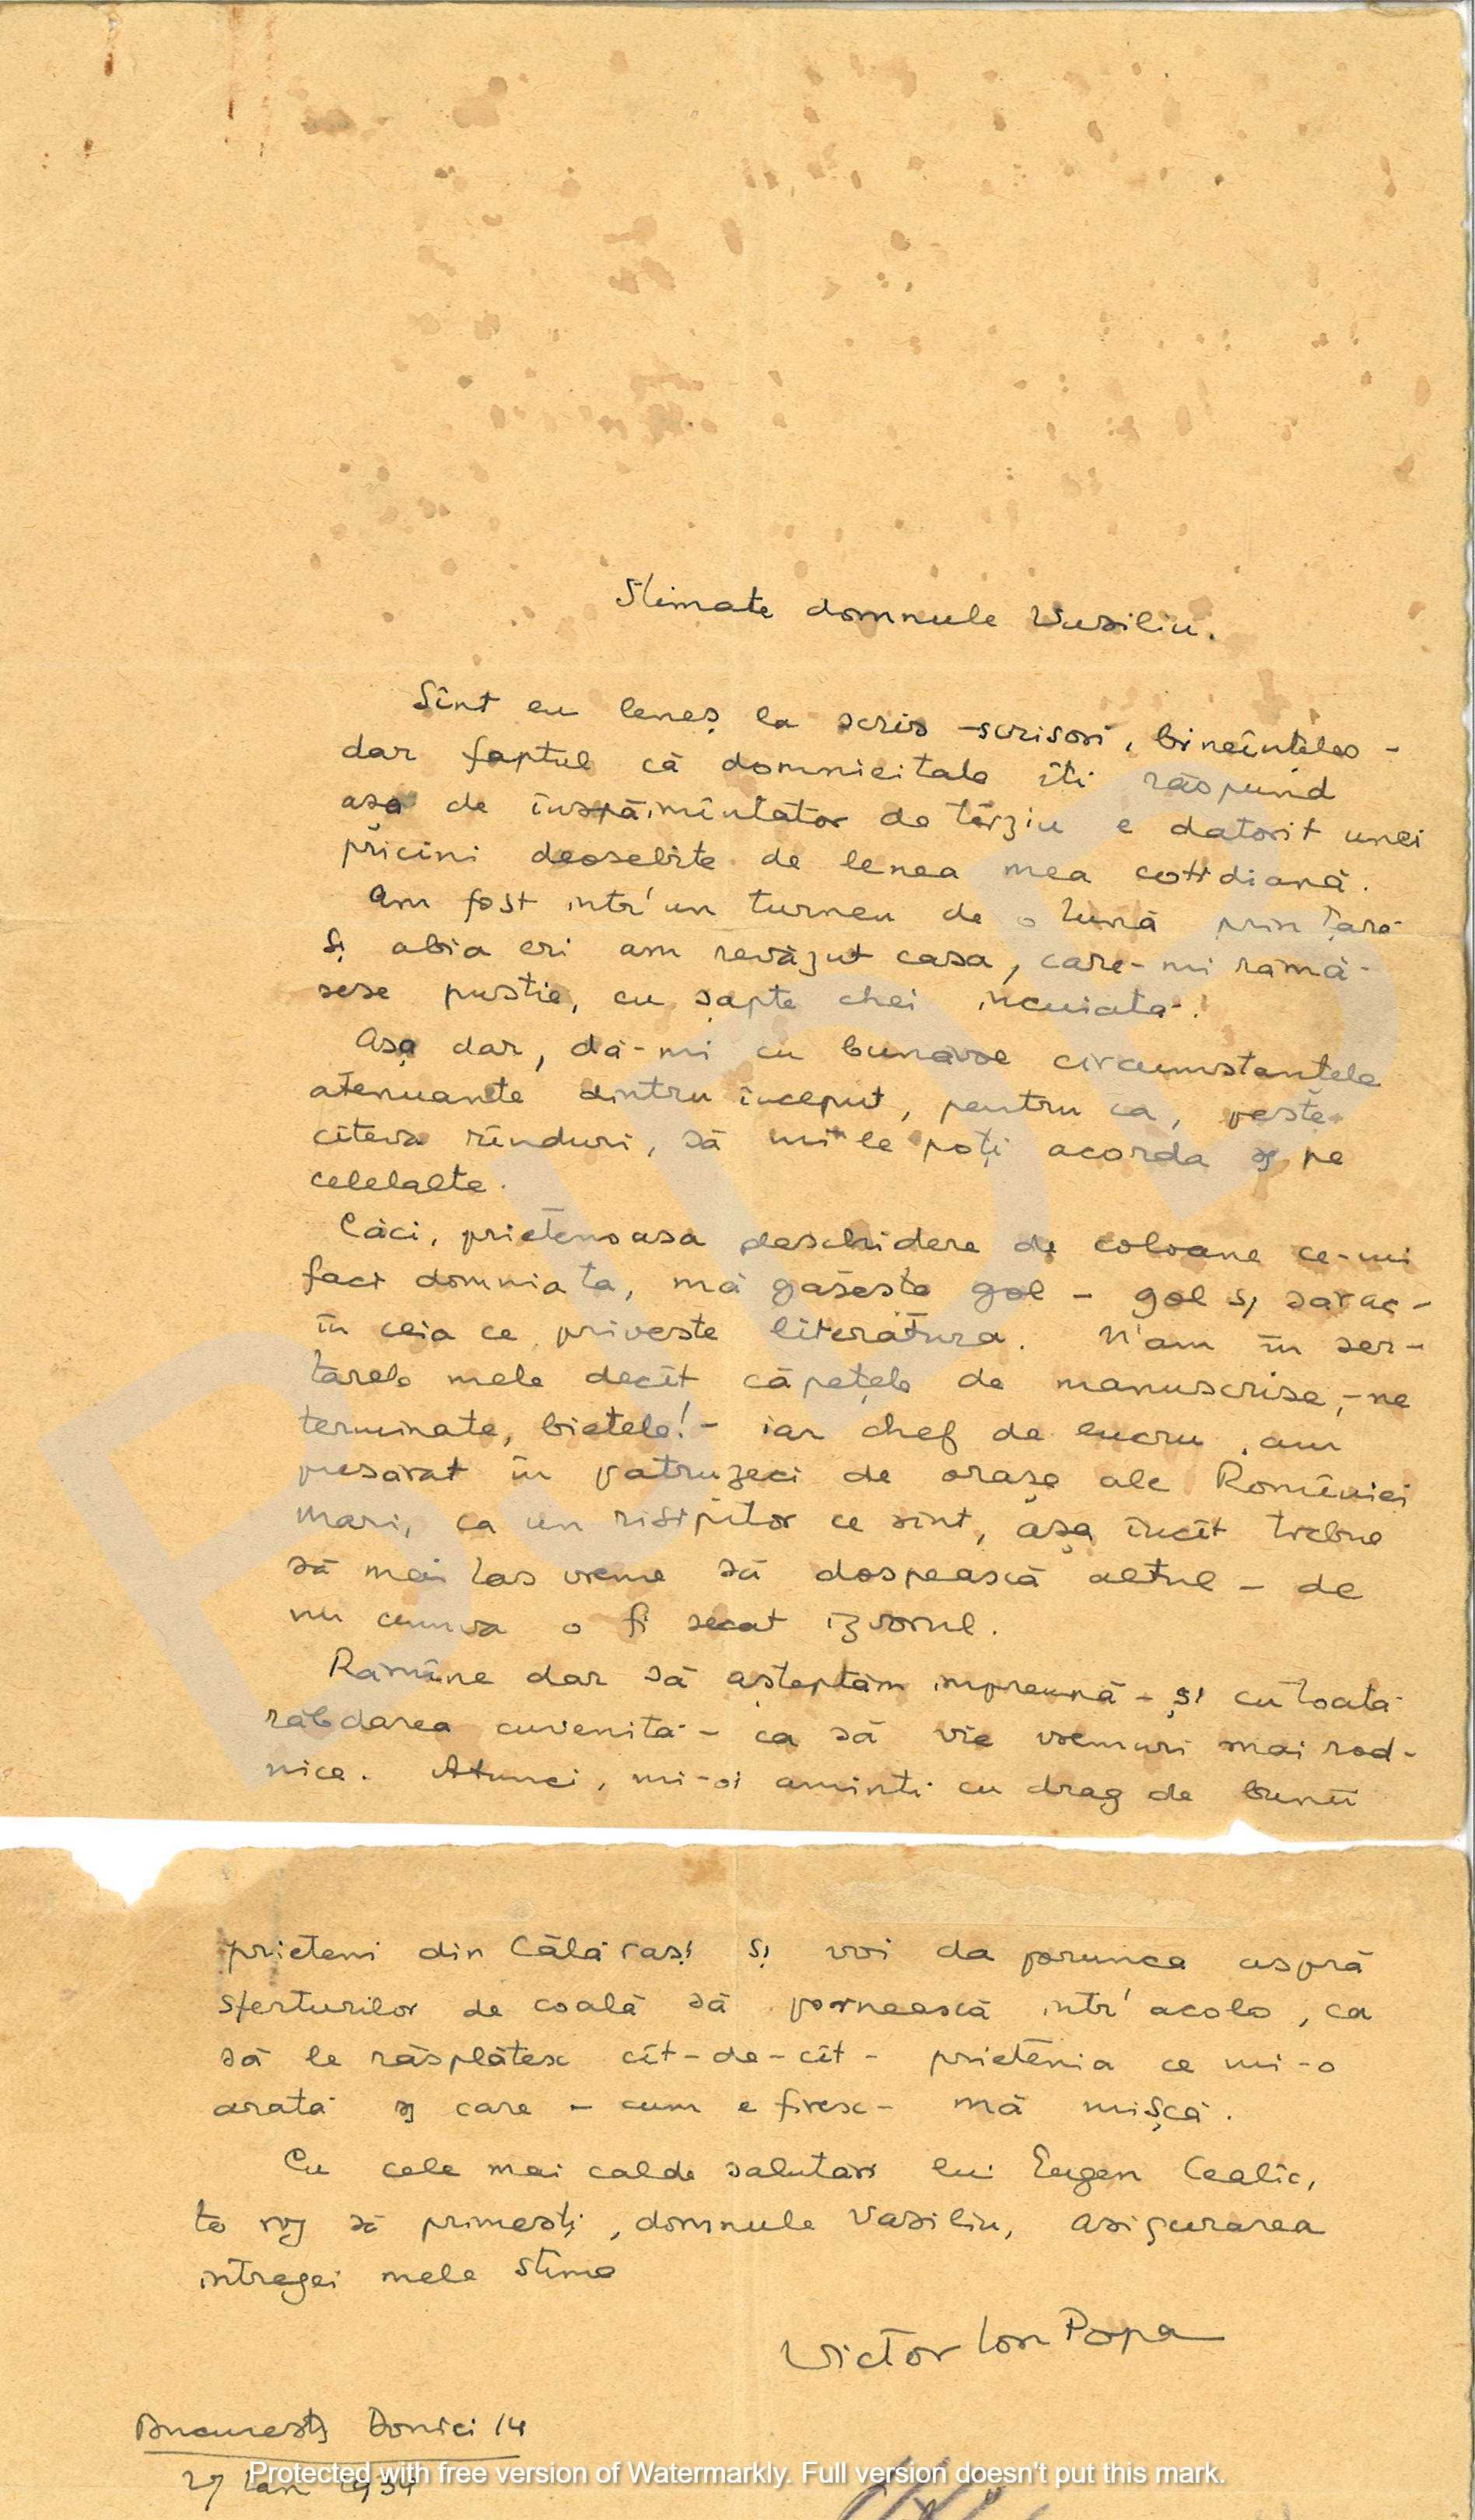 Stimate domnule Vasiliu.
Sînt eu leneș la scris - scrisori, bineînțeles -
dar faptul că domnieitale îți răspund
așa de înspăimîntător de tîrziu e datorit unei
pricini deosebite de lenea mea cotidiană.
Am fost intr'un turneu de o lună prin țară
și abia eri am revăzut casa, care-mi rămă-
sese pustie, cu șapte chei incuiată!
Așa dar, dă-mi cu bunăvoe circumstanțele
atenuante dintru început, pentru ca, peste
cîteva rînduri, să mi le poți acorda și pe
celelalte.
Căci, prietenoasa deschidere de coloane ce-mi
faci domnia ta, mă găsește gol - gol și sărac -
în ceia ce privește literatura. N'am în ser-
tarele mele decît căpețele de manuscrise, - ne
terminate, bietele! - iar chef de lucru am
presărat în patruzeci de orașe ale României
Mari, ca un risipitor ce sînt, așa încît trebue
să mai las vreme să dospească altul - de
nu cumva o fi secat izvorul.
Rămîne dar să așteptăm impreună - și cu toată
răbdarea cuvenită - ca să vie vremuri mai rod-
nice. Atunci, mi-oi aminti cu drag de bunii
prieteni din Călărași și voi da poruncă aspră
sferturilor de coală să pornească intr'acolo, ca
să le răsplătesc cît-de-cît - prietenia ce mi-o
arată și care - cum e firesc - mă mișcă.
Cu cele mai calde salutări lui Eugen Cealîc,
te rog să primești, domnule Vasiliu, asigurarea
intregei mele stime
Victor Ion Popa
București Donici 14
27 Ian 1934
Protected with free version of Watermarkly. Full version doesn't put this mark.